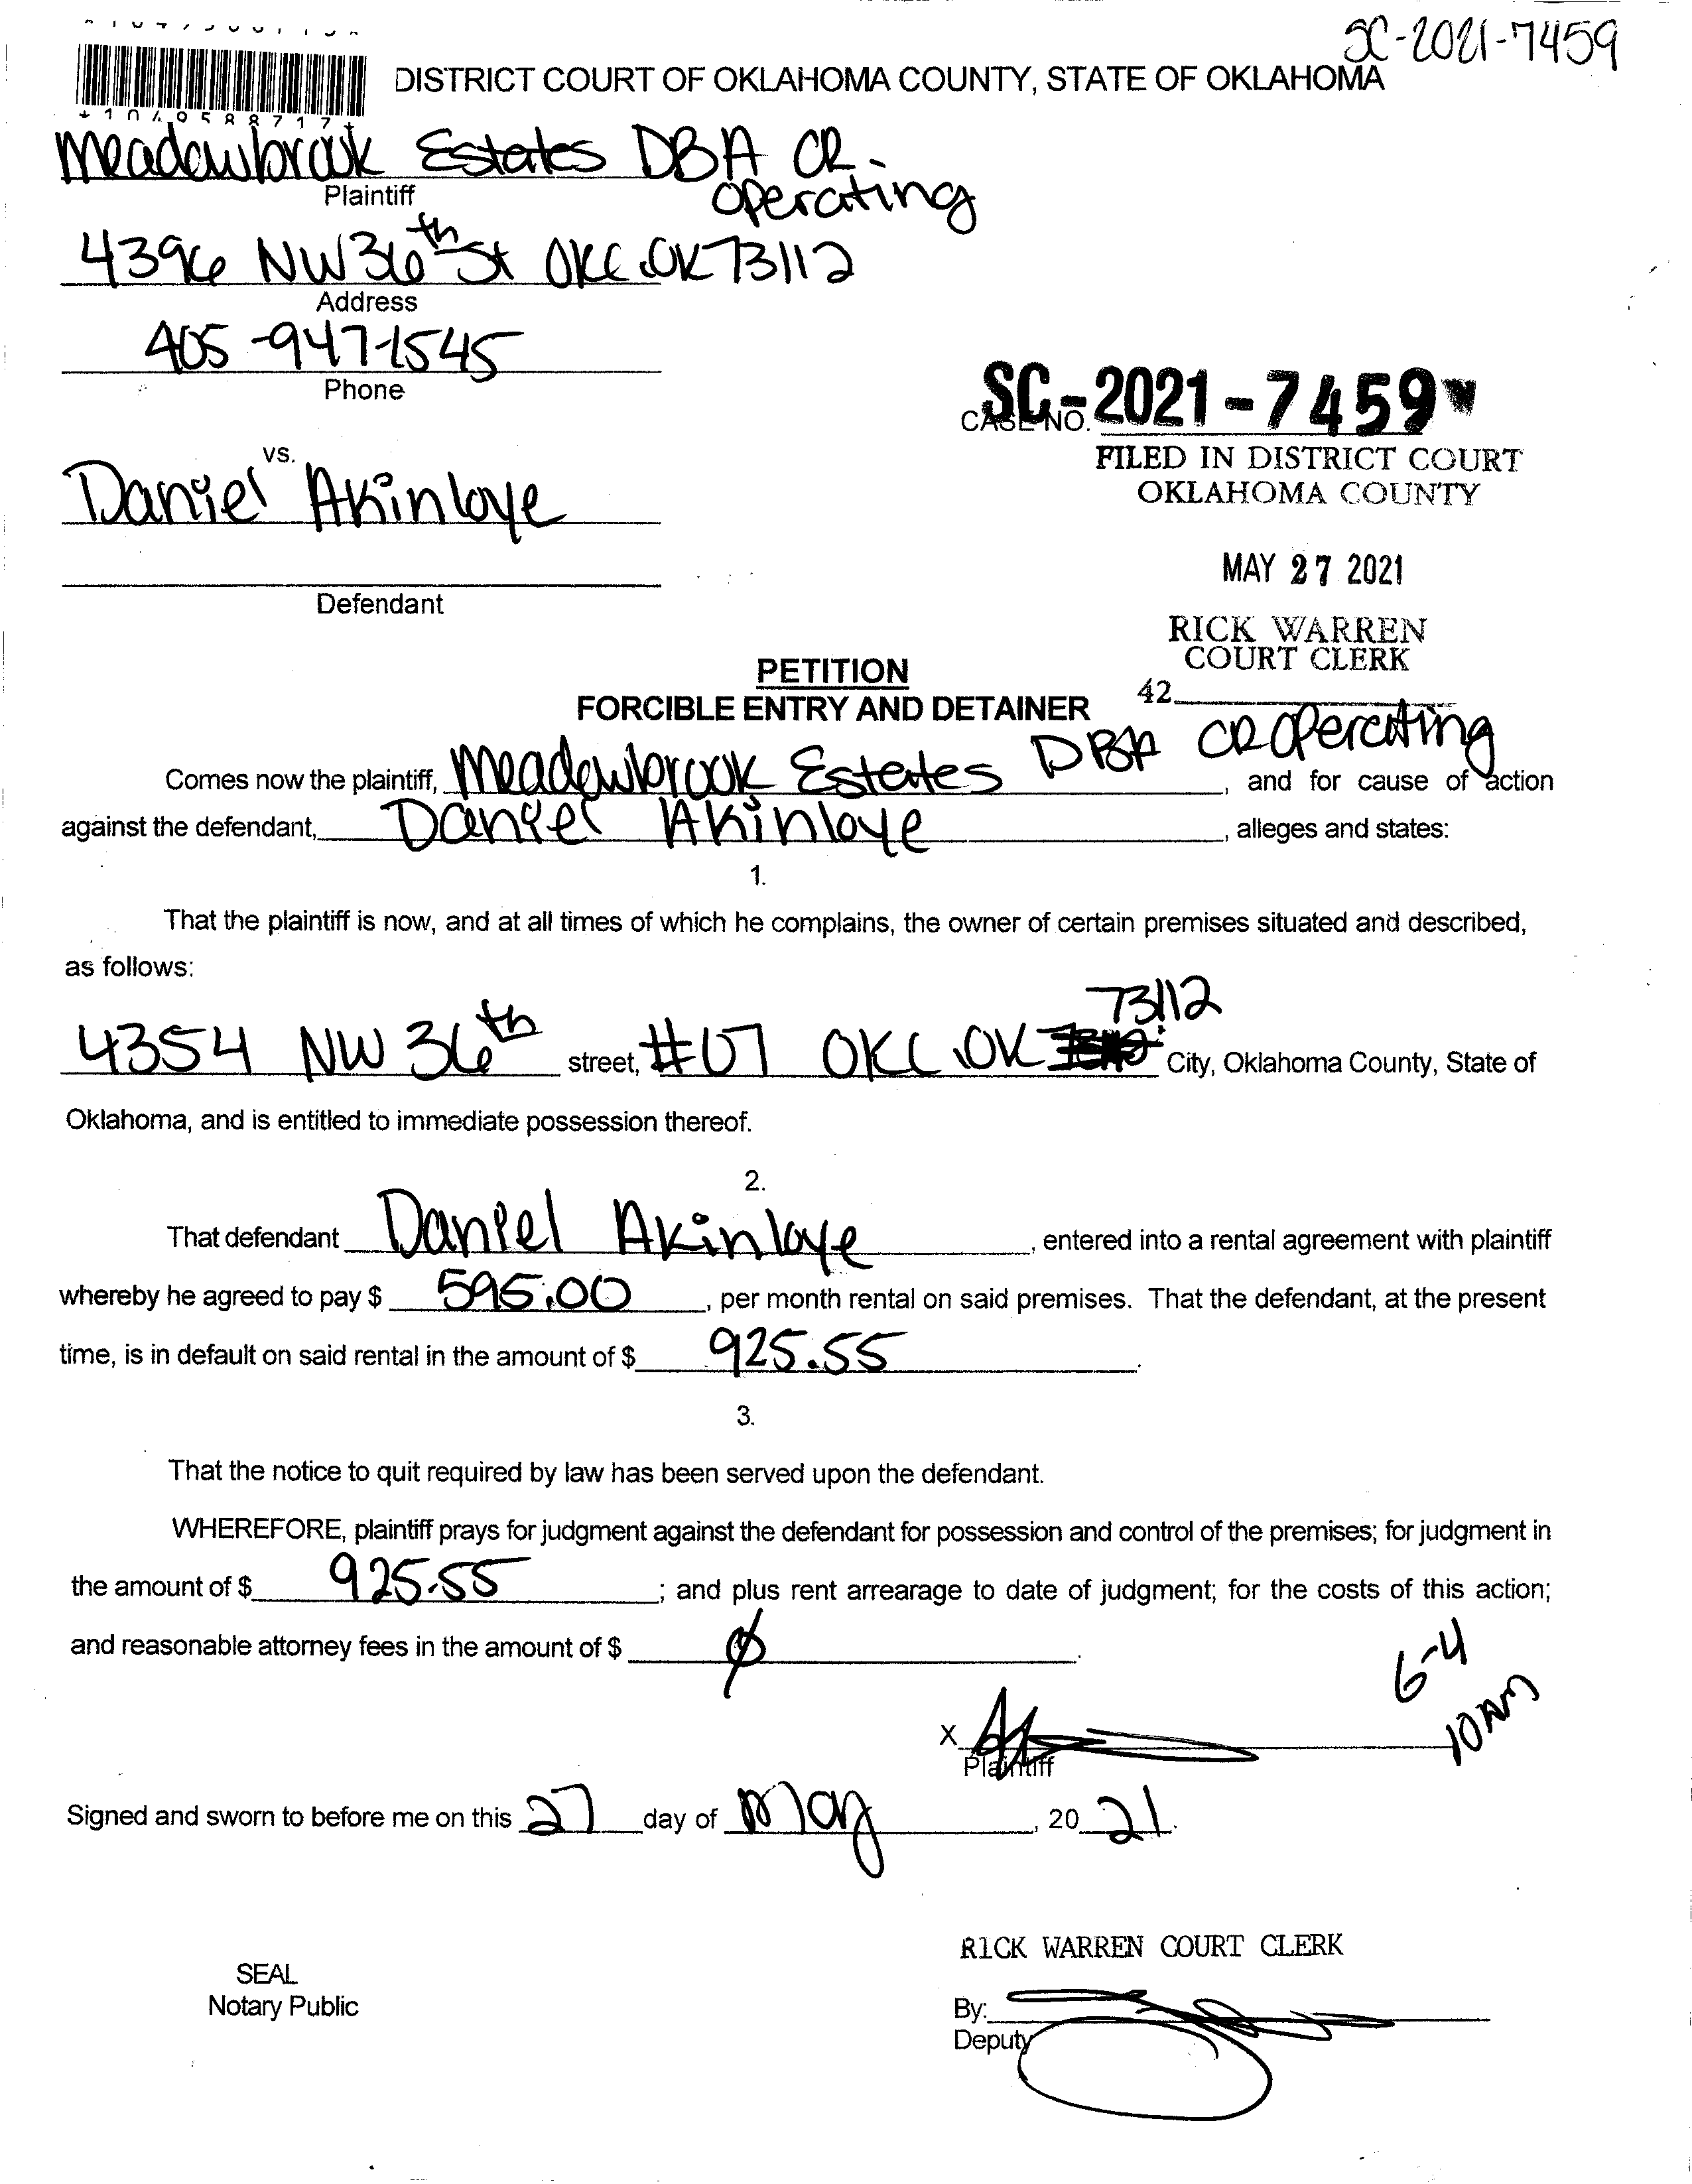 SC-2021-7459
DISTRICT COURT OF OKLAHOMA COUNTY, STATE OF OKLAHOMA
Meadowbrook Estates DBA CR
Operating
Plaintiff
4396 NW 36th St OKC OK 73112
Address
405-947-1545
Phone
SC-2021-7459
CASE NO.
FILED IN DISTRICT COURT
OKLAHOMA COUNTY
vs.
Daniel Akinloye
MAY 27 2021
Defendant
RICK WARREN
COURT CLERK
42
PETITION
FORCIBLE ENTRY AND DETAINER
Comes now the plaintiff, Meadowbrook Estates DBA CR Operating, and for cause of action
against the defendant, Daniel Akinloye, alleges and states:
1.
That the plaintiff is now, and at all times of which he complains, the owner of certain premises situated and described,
as follows:
73112
4354 NW 36th street, #07 OKC OK City, Oklahoma County, State of
Oklahoma, and is entitled to immediate possession thereof.
2.
That defendant Daniel Akinloye, entered into a rental agreement with plaintiff
whereby he agreed to pay $ 595.00, per month rental on said premises. That the defendant, at the present
time, is in default on said rental in the amount of $ 925.55.
3.
That the notice to quit required by law has been served upon the defendant.
WHEREFORE, plaintiff prays for judgment against the defendant for possession and control of the premises; for judgment in
the amount of $ 925.55; and plus rent arrearage to date of judgment; for the costs of this action;
and reasonable attorney fees in the amount of $ ø.
6-4
10AM
X
Plaintiff
Signed and sworn to before me on this 27 day of May, 20 21.
RICK WARREN COURT CLERK
SEAL
Notary Public
By:
Deputy